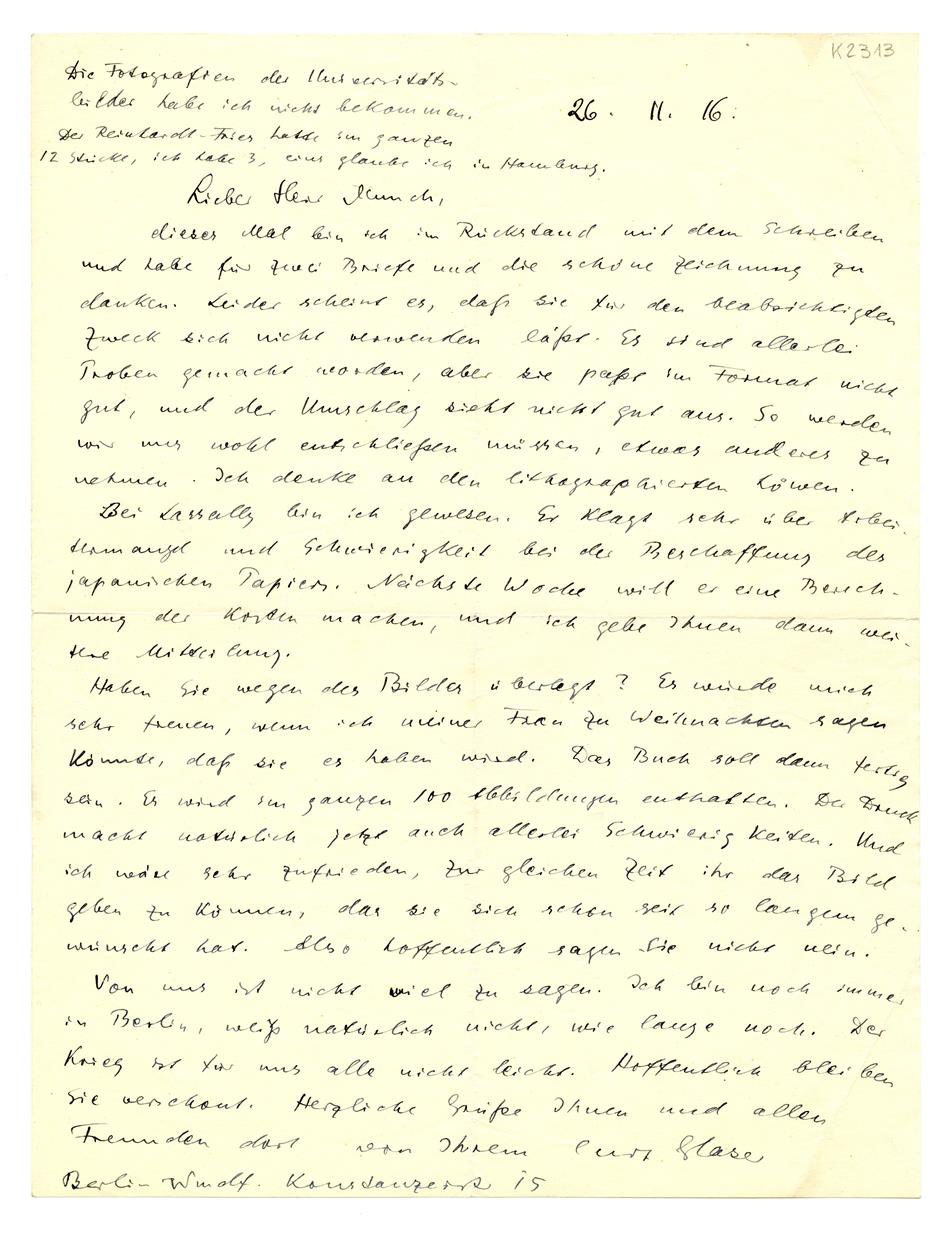 K2313
Die Fotografien der Universitäts-
bilder habe ich nicht bekommen.
26. 11. 16.
Der Reinhardt-Fries hatte im ganzen
12 Stücke, ich habe 3, eins glaube ich in Hamburg.
Lieber Herr Munch,
dieses Mal bin ich im Rückstand mit dem Schreiben
und habe für zwei Briefe und die schöne Zeichnung zu
danken. Leider scheint es, daß sie für den beabsichtigten
Zweck sich nicht verwenden läßt. Es sind allerlei
Proben gemacht worden, aber sie paßt im Format nicht
gut, und der Umschlag sieht nicht gut aus. So werden
wir uns wohl entschließen müssen, etwas anderes zu
nehmen. Ich denke an den lithographierten Löwen.
Bei Lassally bin ich gewesen. Er klagt sehr über Arbei-
termangel und Schwierigkeit bei der Beschaffung des
japanischen Papiers. Nächste Woche will er eine Berech-
nung der Kosten machen, und ich gebe Ihnen dann wei-
tere Mitteilung.
Haben Sie wegen des Bildes überlegt? Es würde mich
sehr freuen, wenn ich meiner Frau zu Weihnachten sagen
könnte, daß sie es haben wird. Das Buch soll dann fertig
sein. Es wird im ganzen 100 Abbildungen enthalten. Der Druck
macht natürlich jetzt auch allerlei Schwierigkeiten. Und
ich wäre sehr zufrieden, zur gleichen Zeit ihr das Bild
geben zu können, das sie sich schon seit so langem ge-
wünscht hat. Also hoffentlich sagen Sie nicht nein.
Von uns ist nicht viel zu sagen. Ich bin noch immer
in Berlin, weiß natürlich nicht, wie lange noch. Der
Krieg ist für uns alle nicht leicht. Hoffentlich bleiben
Sie verschont. Herzliche Grüße Ihnen und allen
Freunden dort von Ihrem Curt Glaser
Berlin-Wmdf. Konstanzerstr 15